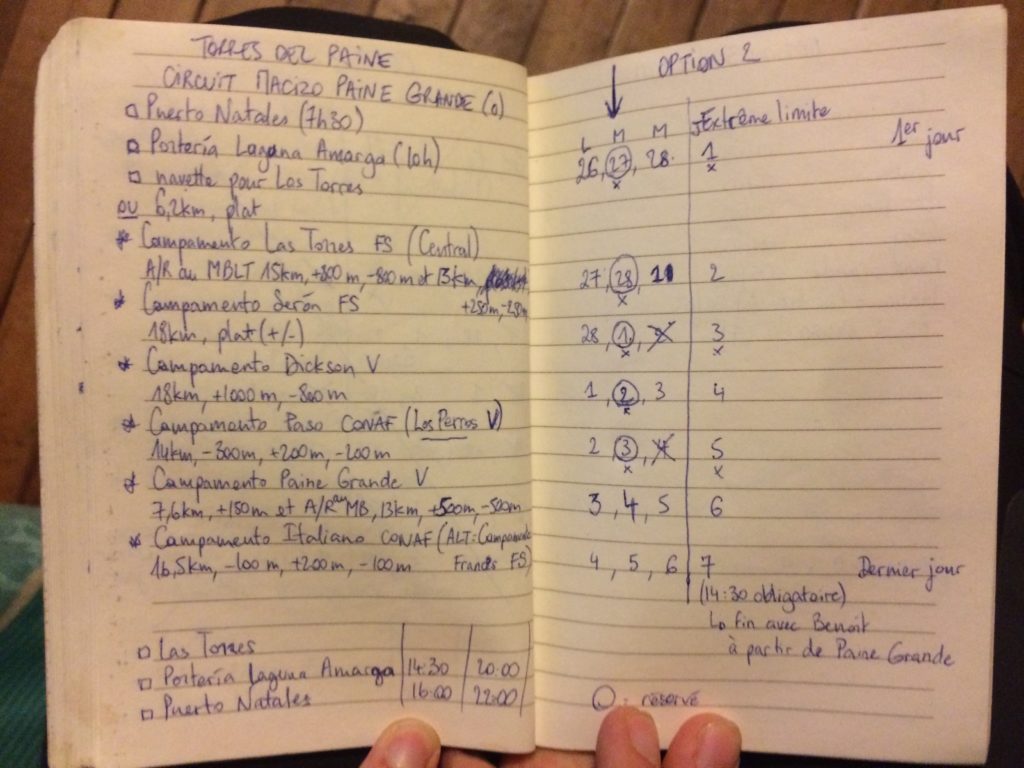 TORRES DEL PAINE
CIRCUIT MACIZO PAINE GRANDE (O)
□ Puerto Natales (7h30)
□ Portería Laguna Amarga (10h)
□ navette pour Las Torres
OU 6,2km, plat
* Campamento Las Torres FS (Central)
A/R au MBLT 15km, +800m, -800m et 13km,
+250m, -250m
* Campamento Serón FS
18km, plat (+/-)
* Campamento Dickson V
18km, +1000m, -800m
* Campamento Paso CONAF (Los Perros V)
14km, -300m, +200m, -200m
* Campamento Paine Grande V
7,6km, +150m et A/R au MB, 13km, +500m, -500m
* Campamento Italiano CONAF (ALT: Campamento
Francés FS)
16,5km, -100m, +200m, -100m
□ Las Torres
□ Portería Laguna Amarga 14:30 20:00
□ Puerto Natales 16:00 22:00
OPTION 2
L M M Extrême limite
26, 27, 28. 1 1er jour
x x
27, 28, 1 2
x
28, 1, 2 3
x x
1, 2, 3 4
x
2, 3, 4 5
x x
3, 4, 5 6
4, 5, 6 7 Dernier jour
(14:30 obligatoire)
↳ fin avec Benoit
à partir de Paine Grande
O : réservé